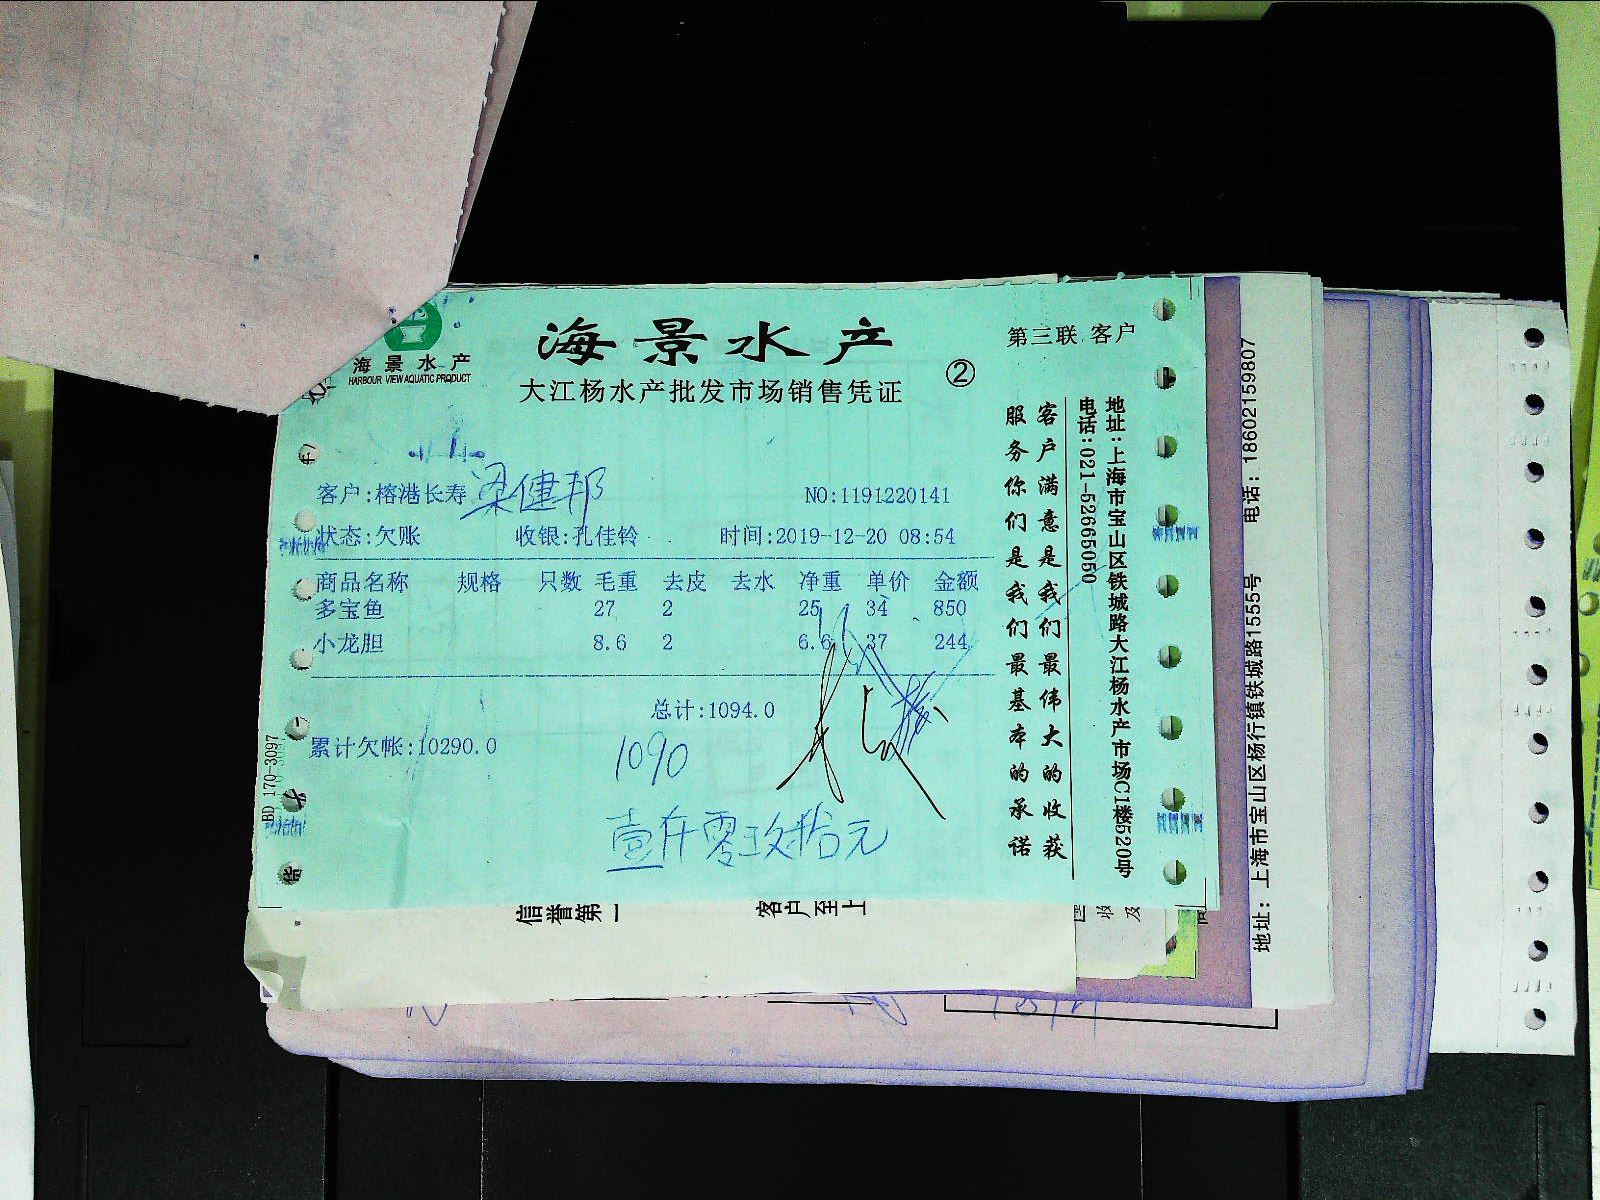 海景水产
HARBOUR VIEW AQUATIC PRODUCT
海景水产
大江杨水产批发市场销售凭证
②
第三联 客户
客户:榕港长寿 梁健邦
NO:1191220141
状态:欠账 收银:孔佳铃 时间:2019-12-20 08:54
商品名称 规格 只数 毛重 去皮 去水 净重 单价 金额
多宝鱼 27 2 25 34 850
小龙胆 8.6 2 6.6 37 244
总计:1094.0
累计欠帐:10290.0
1090
壹仟零玖拾元
客户满意是我们最伟大的收获
服务你们是我们最基本的承诺
地址:上海市宝山区铁城路大江杨水产市场C1楼520号
电话:021-52665050
BD 170-3097
信誉第一
客户至上
地址:上海市宝山区杨行镇铁城路1555号 电话:18602159807